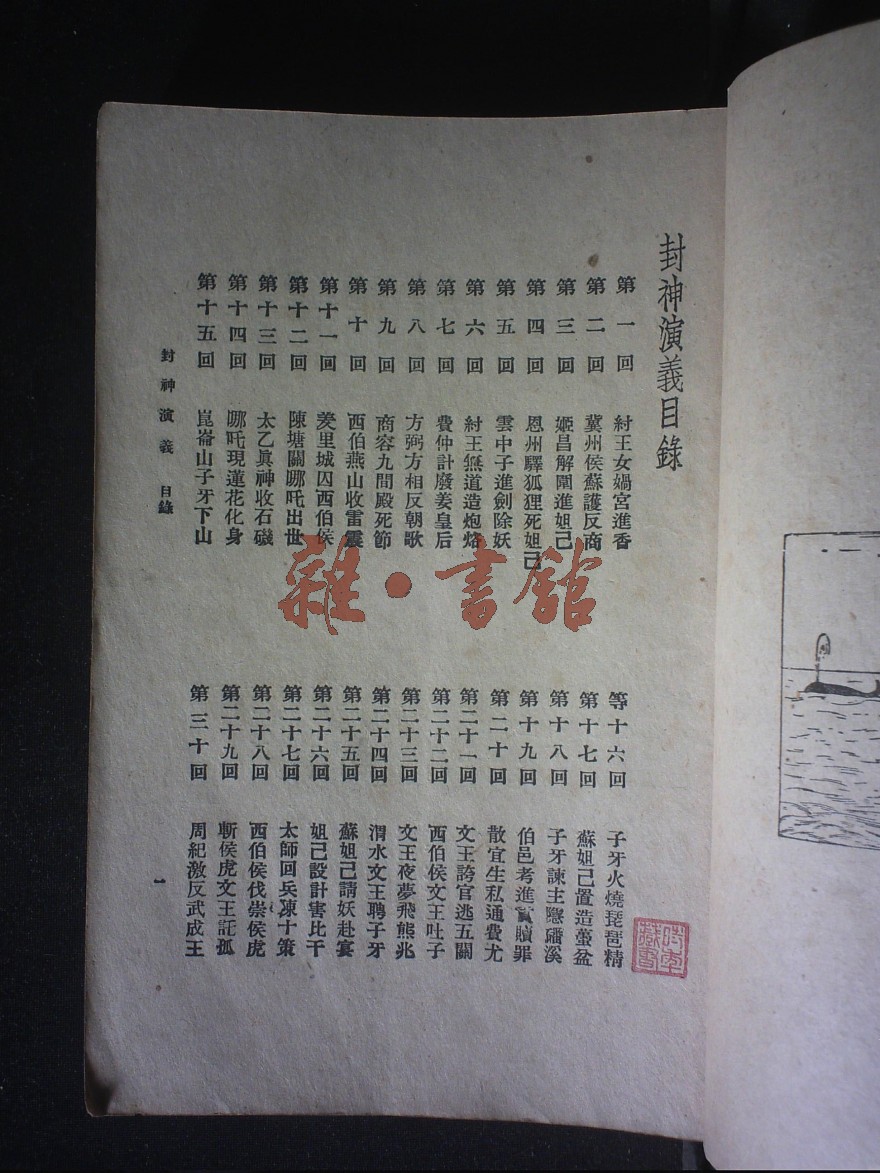 封神演義目錄
第一回 紂王女媧宮進香
第二回 冀州侯蘇護反商
第三回 姬昌解圍進妲己
第四回 恩州驛狐狸死妲己
第五回 雲中子進劍除妖
第六回 紂王無道造炮烙
第七回 費仲計廢姜皇后
第八回 方弼方相反朝歌
第九回 商容九間殿死節
第十回 西伯燕山收雷震
第十一回 羑里城囚西伯侯
第十二回 陳塘關哪吒出世
第十三回 太乙眞神收石磯
第十四回 哪吒現蓮花化身
第十五回 崑崙山子牙下山
等十六回 子牙火燒琵琶精
第十七回 蘇妲己置造蠆盆
第十八回 子牙諫主隱磻溪
第十九回 伯邑考進貢贖罪
第二十回 散宜生私通費尤
第二十一回 文王誇官逃五關
第二十二回 西伯侯文王吐子
第二十三回 文王夜夢飛熊兆
第二十四回 渭水文王聘子牙
第二十五回 蘇妲己請妖赴宴
第二十六回 妲己設計害比干
第二十七回 太師回兵凍十策
第二十八回 西伯侯伐崇侯虎
第二十九回 斬侯虎文王託孤
第三十回 周紀激反武成王
封神演義 目錄
一
雜·書館